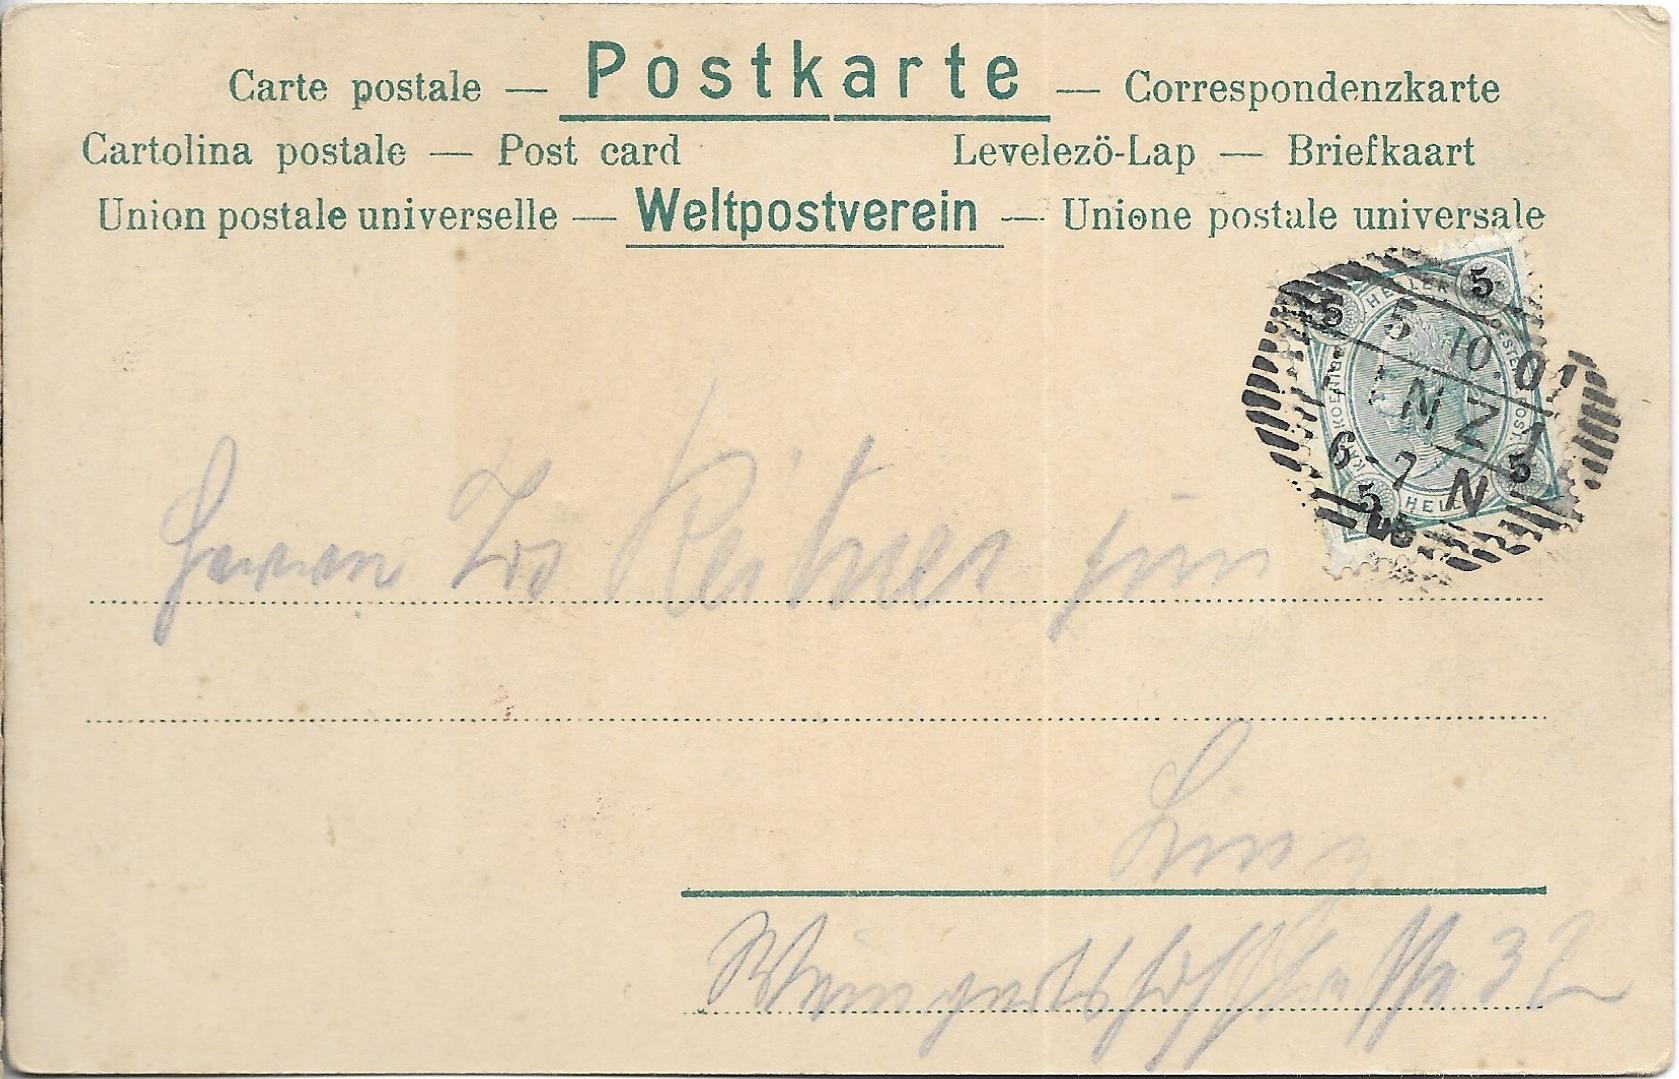 Carte postale — Postkarte — Correspondenzkarte
Cartolina postale — Post card Levelezö-Lap — Briefkaart
Union postale universelle — Weltpostverein — Unione postale universale
5 HELLER 5
5 10.01
NZ 1
6-7 N
5 HELL 5
Herrn Reitner jun
Linz
Weingartshofstraße 32